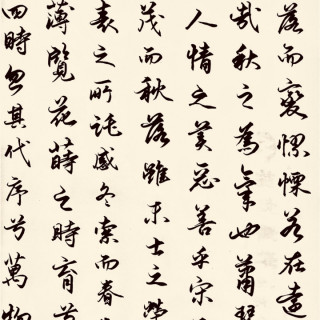 落而變憭慄若在遠
哉秋之為氣也蕭瑟
人情之美惡善乎宋
茂而秋落雖末士之榮
衰之所託感冬索而春
薄覽花蒔之時育兮
四時忽其代序兮萬物